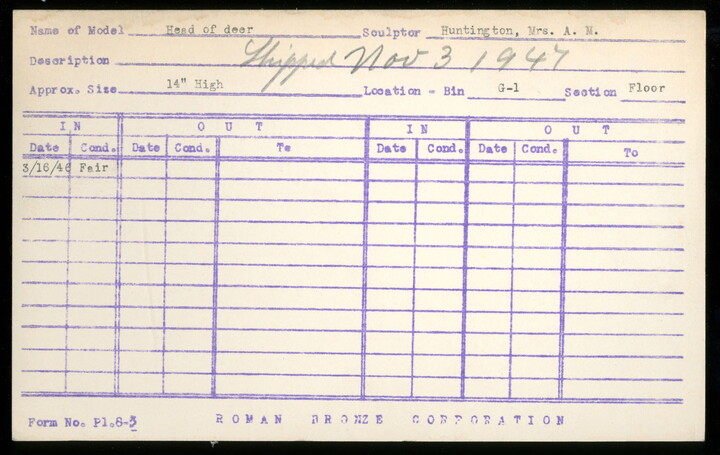 Name of Model Head of deer Sculptor Huntington, Mrs. A. M.
Description Shipped Nov 3 1947
Approx. Size 14" High Location - Bin G-1 Section Floor
IN OUT IN OUT
Date Cond. Date Cond. To Date Cond. Date Cond. To
3/16/46 Fair
Form No. Pl.8-3 ROMAN BRONZE CORPORATION